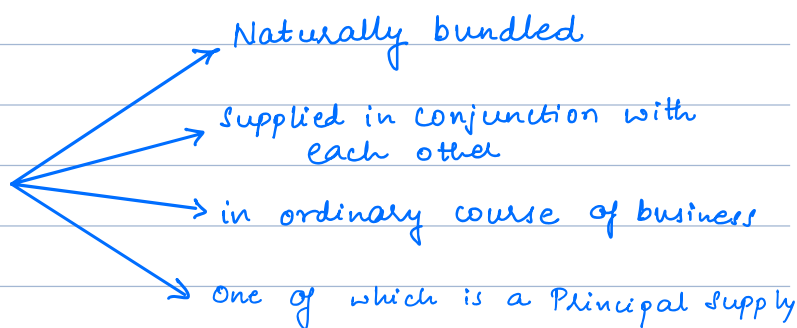 Naturally bundled
Supplied in conjunction with
each other
in ordinary course of business
One of which is a Principal Supply